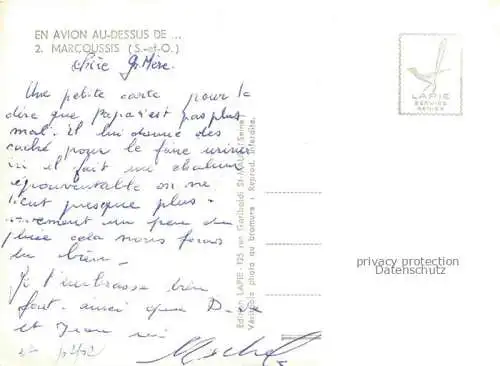 EN AVION AU-DESSUS DE ...
2. MARCOUSSIS (S.-et-O.)
chère Gd Mère.
Une petite carte pour te
dire que Papa n'est pas plus
mal. Et lui donne des
cachet pour le faire uriner
ici il fait une chaleur
épouvantable on ne
tient presque plus.
vivement un peu de
pluie cela nous feras
du bien.
Je t'embrasse bien
fort. ainsi que
et Jean
Michel
LAPIE
SERVICE
AERIEN
Edition LAPIE - 125 rue Garibaldi St-MAUR (Seine)
Véritable photo au bromure : Reprod. interdite.
privacy protection
Datenschutz